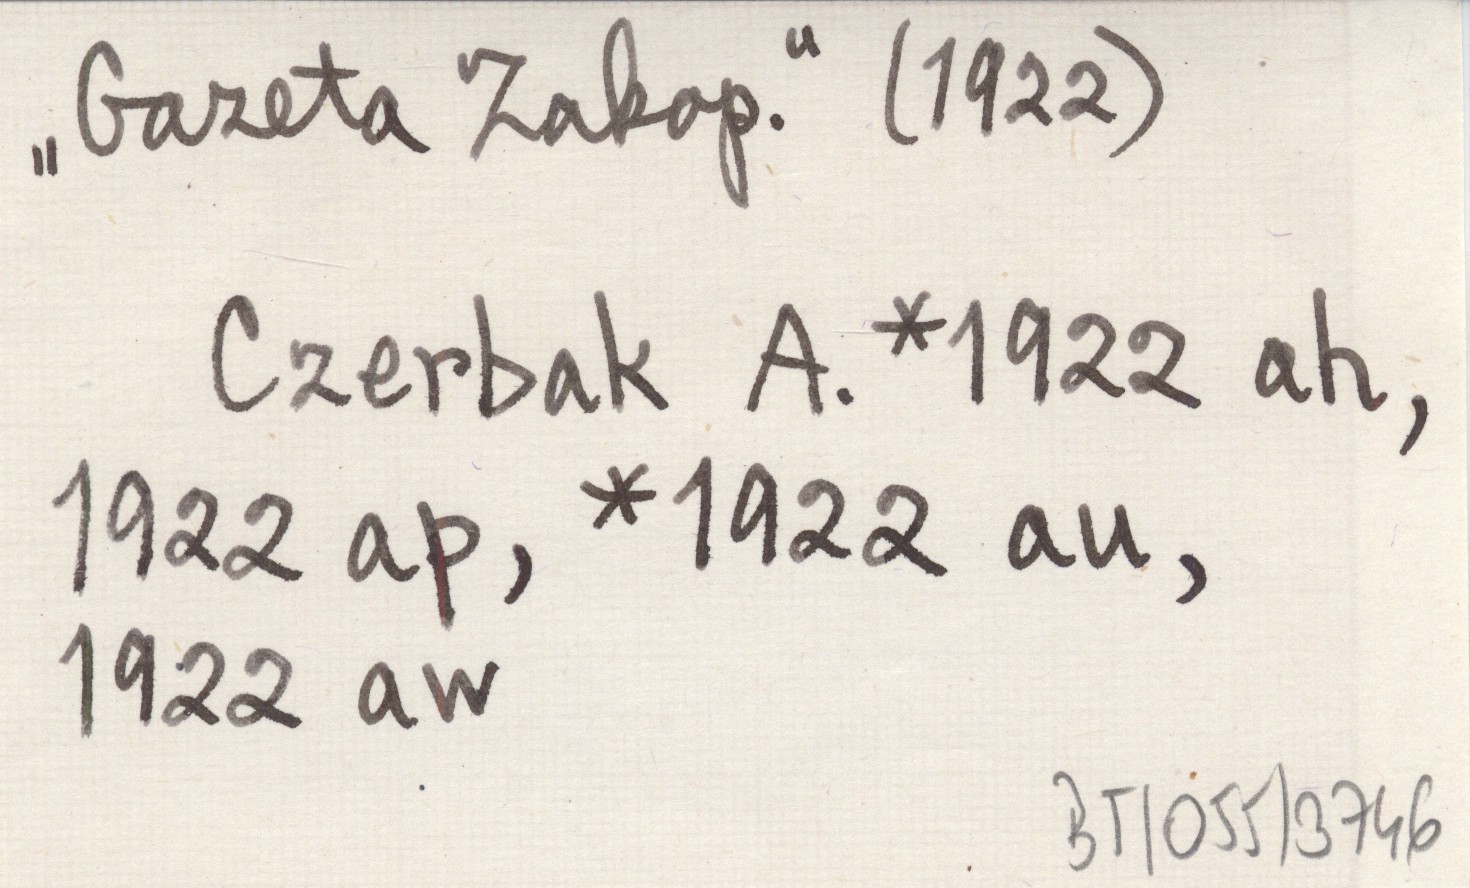 „Gazeta Zakop.“ (1922)
Czerbak A. *1922 ah,
1922 ap, *1922 au,
1922 aw
BT/055/3746